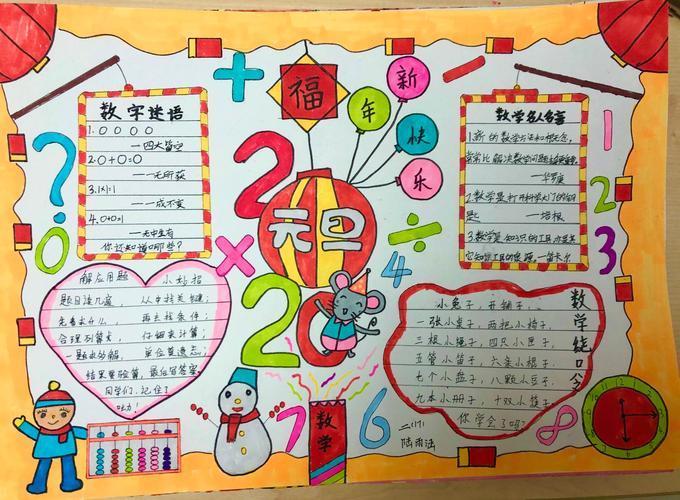 数字迷语
1.0000
—四大皆空
2.0+0=0
—一无所获
3.1×1=1
—一成不变
4.0+0=1
—无中生有
你还知道哪些？
福
新
年
快
乐
数学名人名言
1.新的数学方法和概念，
常常比解决数学问题本身更重要。
—华罗庚
2.数学是打开科学大门的钥
匙
—培根
3.数学是知识的工具，亦是其
它知识工具的泉源。—笛卡尔
元旦
2020
解应用题 小妙招
题目读几遍，从中找关键；
先看求什么，再去找条件；
合理列算式，仔细来计算；
一题求多解，单位莫遗忘；
结果要验算，最后写答案。
同学们，记住了
吗？
数学绕口令
小兔子，开铺子，
一张小桌子，两把小椅子，
三根小绳子，四只小匣子，
五管小笛子，六条小棍子，
七个小盘子，八颗小豆子，
九本小册子，十双小筷子，
你学会了吗？
数学